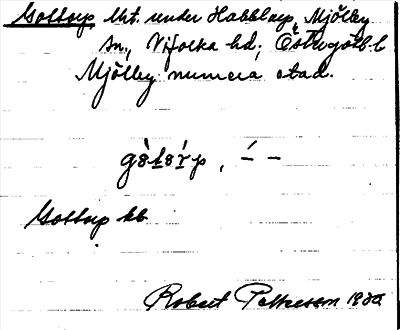 Gottorp Lht. under Habblarp, Mjölby
sn, Vifolka hd, Östergötl. l
Mjölby numera stad.
Gottorp kb
Robert Petterson 1930